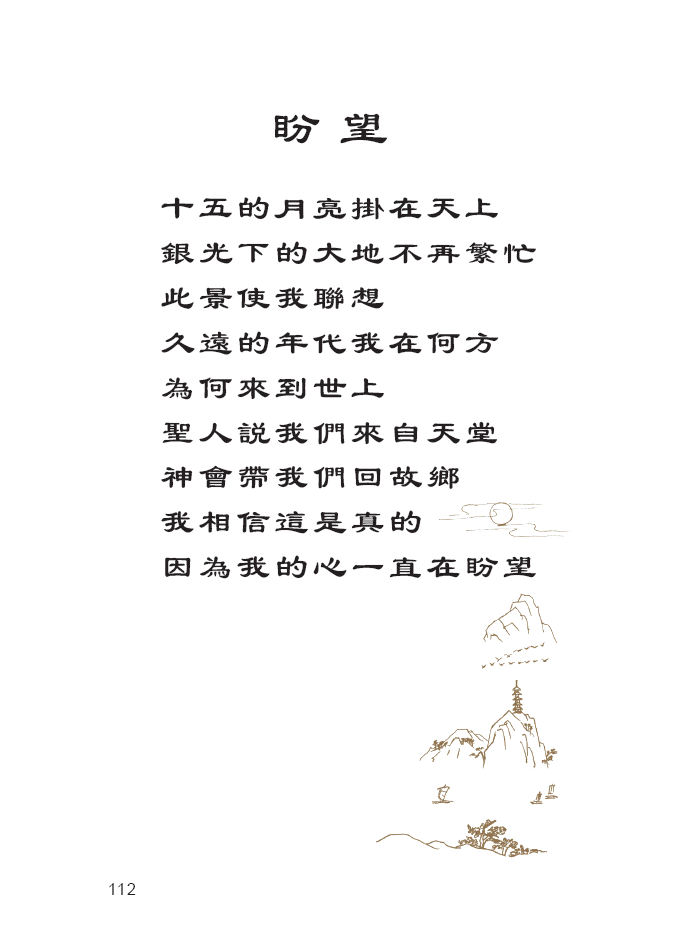 盼望
十五的月亮掛在天上
銀光下的大地不再繁忙
此景使我聯想
久遠的年代我在何方
為何來到世上
聖人説我們來自天堂
神會帶我們回故鄉
我相信這是真的
因為我的心一直在盼望
112